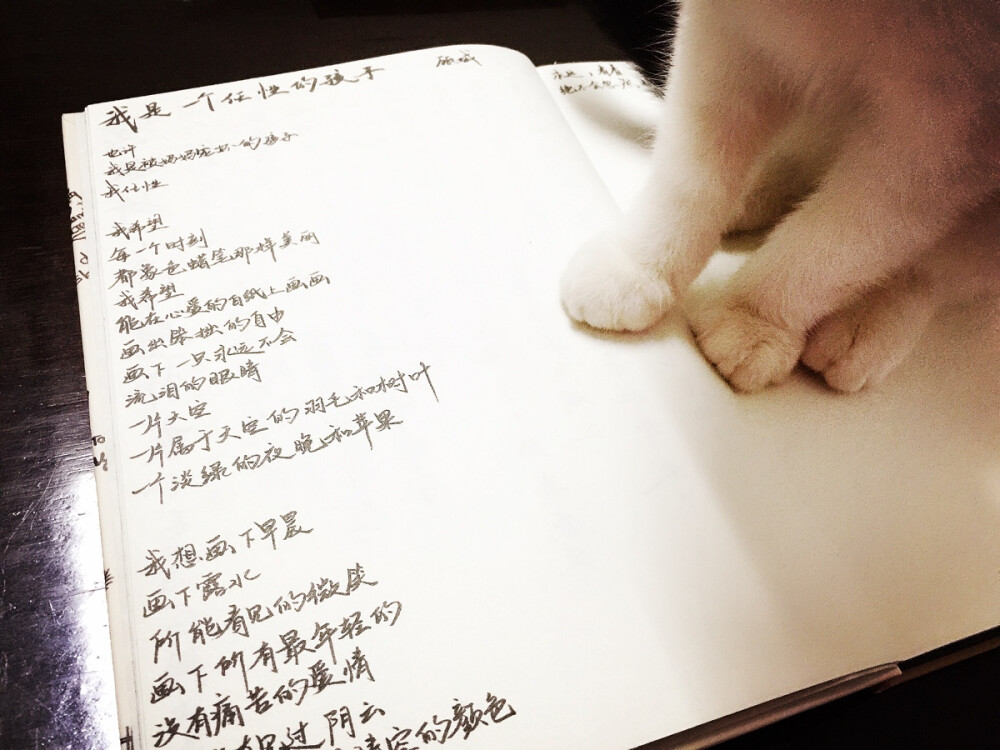 我是一个任性的孩子
顾城
也许
我是被妈妈宠坏的孩子
我任性
我希望
每一个时刻
都象色蜡笔那样美丽
我希望
能在心爱的白纸上画画
画出笨拙的自由
画下一只永远不会
流泪的眼睛
一片天空
一片属于天空的羽毛和树叶
一个淡绿的夜晚和苹果
我想画下早晨
画下露水
所能看见的微笑
画下所有最年轻的
没有痛苦的爱情
见过阴云
晴空的颜色
永远，看着
绝不会忽